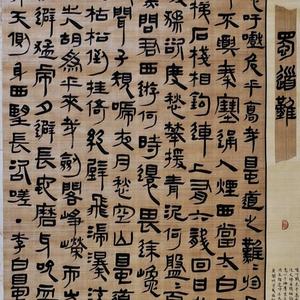 蜀道難
吁嚱危乎高哉蜀道之難難
不與秦塞通人煙西當太白
梯石棧相鉤連上有六龍回日
猱欲度愁攀援青泥何盤
問君西遊何時還畏途巉
聞子規啼夜月愁空山
枯松倒挂倚絕壁飛湍瀑流
人胡為乎來哉劍閣崢嶸而
避猛虎夕避長蛇磨牙吮血
天側身西望長咨嗟李白蜀